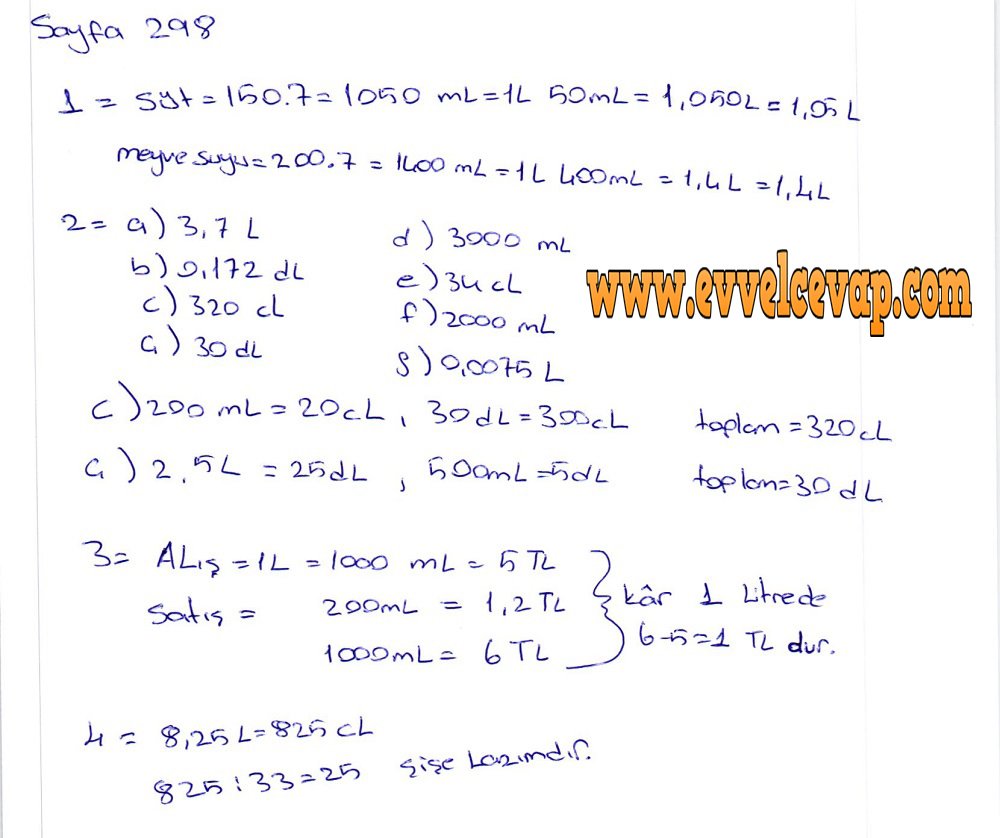 Sayfa 298
1 = süt = 150.7 = 1050 mL = 1L 50mL = 1,050L = 1,05 L
meyve suyu = 200.7 = 1400 mL = 1L 400mL = 1,4 L = 1,4L
2 = a) 3,7 L
b) 0,172 dL
c) 320 cL
ç) 30 dL
d) 3000 mL
e) 34 cL
f) 2000 mL
g) 0,0075 L
www.evvelcevap.com
c) 200 mL = 20cL, 30dL = 300cL toplam = 320cL
ç) 2,5L = 25dL, 500mL = 5dL toplam = 30 dL
3 = ALış = 1L = 1000 mL = 5 TL
Satış = 200mL = 1,2 TL
1000mL = 6 TL
kâr 1 Litrede
6-5=1 TL dur.
4 = 8,25L = 825 cL
825 : 33 = 25 şişe Lazımdır.